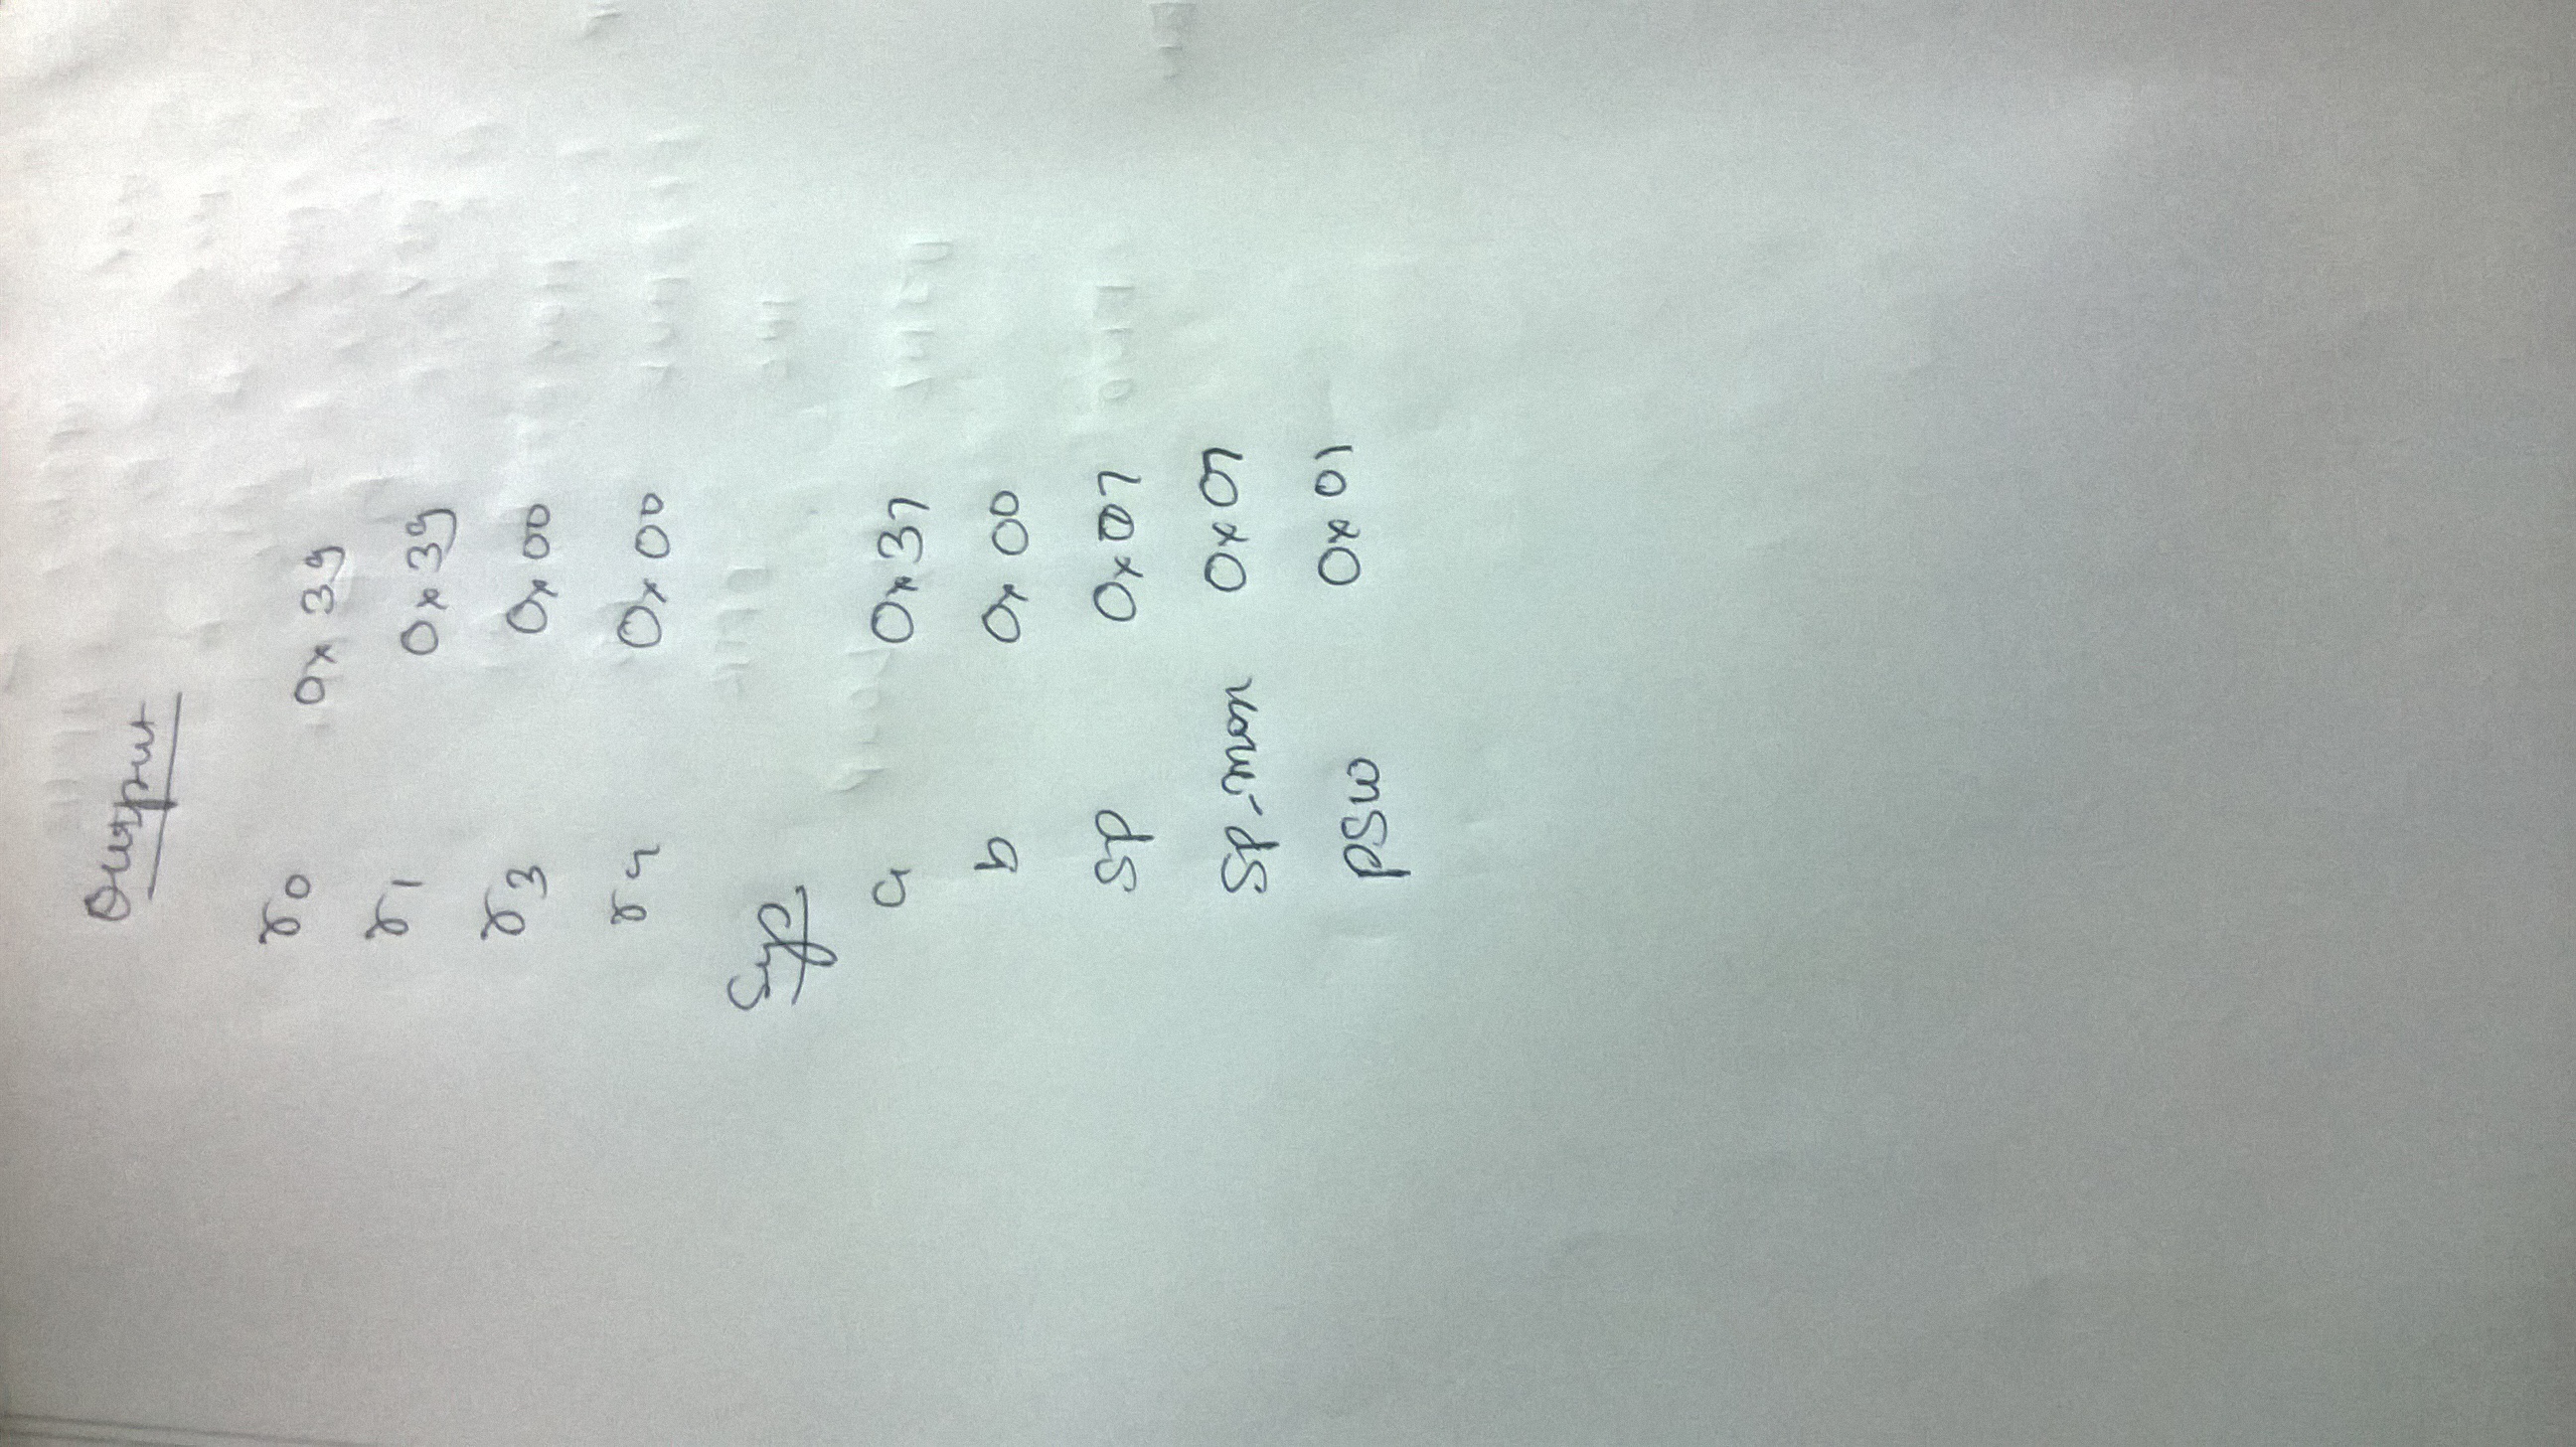 Output
r0 0x39
r1 0x39
r3 0x00
r4 0x00
Sys
a 0x37
b 0x00
SP 0x07
SP-max 0x07
PSW 0x01